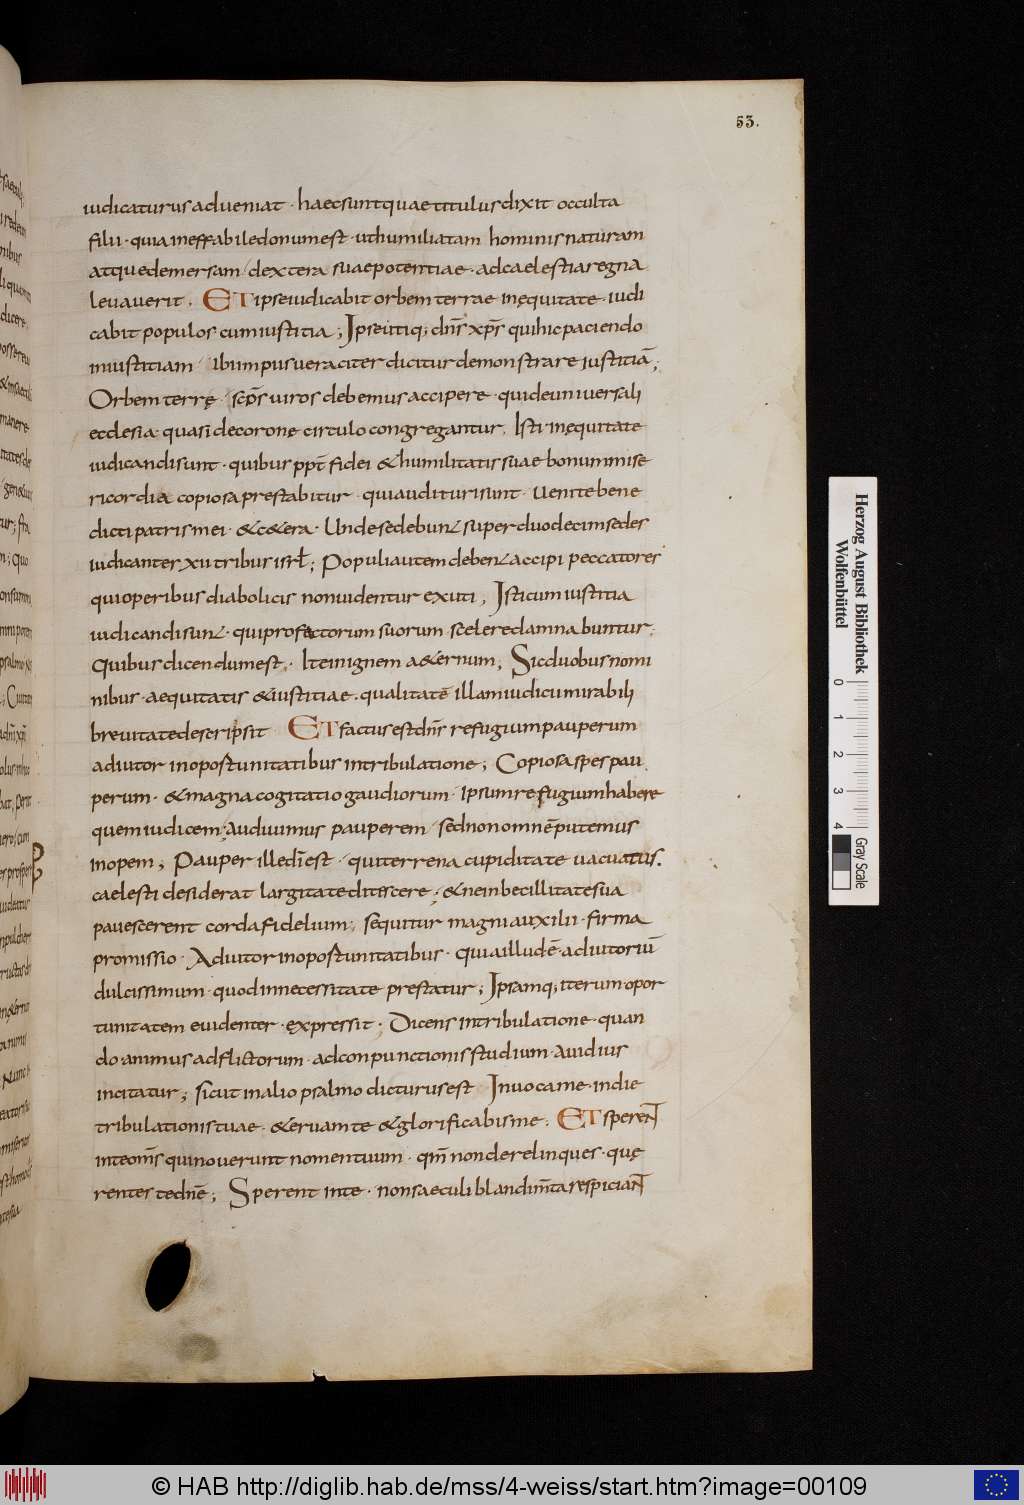 53.
iudicaturus adueniat · haec sunt quae titulus dixit occulta
filii · quia ineffabile donum est · ut humiliatam hominis naturam
atque demersam / dextera suae potentiae · ad caelestia regna
leuauerit . ET ipse iudicabit orbem terrae in ęquitate · iudi
cabit populos cum iustitia ; Ipse utiq; dn̄s xp̄s qui hic paciendo
iniustitiam / ibi impus ueraciter dicitur demonstrare iustitiā ;
Orbem terrę / sc̄os uiros debemus accipere · qui de uniuersali
ecclesia · quasi decorone circulo congregantur . Isti in ęquitate
iudicandi sunt · quibus ppt̄ fidei & humilitatis suae bonum mise
ricordia copiosa prestabitur · qui audituri sunt · Uenite bene
dicti patris mei · & c&era · Unde sedebunt super duodecim sedes
iudicantes xii tribus isrl̄ ; Populi autem debent accipi peccatores
qui operibus diabolicis non uidentur exuti , Isti cum iustitia
iudicandi sunt · qui pro factorum suorum scelere damnabuntur ;
Quibus dicendum est · Ite in ignem a&ernum ; Sic duobus nomi
nibus · aequitatis & iustitiae · qualitatē illam iudicii mirabili
breuitate descripsit ET factus est dn̄s refugium pauperum
adiutor in oportunitatibus in tribulatione ; Copiosa spes pau
perum · & magna cogitatio gaudiorum · Ipsum refugium habere
quem iudicem ; Audiuimus pauperem / sed non omnē putemus
inopem ; Pauper ille dī est / qui terrena cupiditate uacuatus .
caelesti desiderat largitate ditescere ; & ne inbecillitate sua
pauescerent corda fidelium ; sequitur magni auxilii · firma
promissio · Adiutor in oportunitatibus · quia illud ē adiutoriū
dulcissimum · quod in necessitate prestatur ; Ipsamq; iterum opor
tunitatem euidenter · ęxpressit ; Dicens in tribulatione · quan
do animus adflictorum · ad conpunctionis studium · auidius
incitatur ; sicut in alio psalmo dicturus est Inuoca me · in die
tribulationis tuae · & eruam te & glorificabis me . ET sperent
in te om̄s qui nouerunt nomen tuum · qm̄ non derelinques · quę
rentes te dn̄e ; Sperent in te · non saeculi blandim̄ta respiciant
Herzog August Bibliothek
Wolfenbüttel
0 1 2 3 4
Gray Scale
© HAB http://diglib.hab.de/mss/4-weiss/start.htm?image=00109